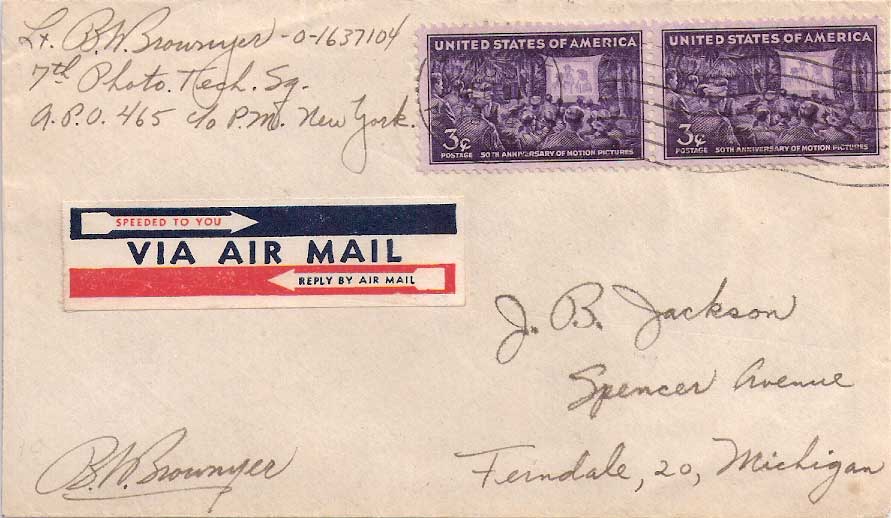 Lt. B.W. Brownyer - O-1637104
7th Photo. Tech. Sq.
A.P.O. 465 c/o P.M. New York.
UNITED STATES OF AMERICA
3¢
POSTAGE 50TH ANNIVERSARY OF MOTION PICTURES
UNITED STATES OF AMERICA
3¢
POSTAGE 50TH ANNIVERSARY OF MOTION PICTURES
SPEEDED TO YOU
VIA AIR MAIL
REPLY BY AIR MAIL
J. B. Jackson
Spencer Avenue
Ferndale, 20, Michigan
B.W. Brownyer